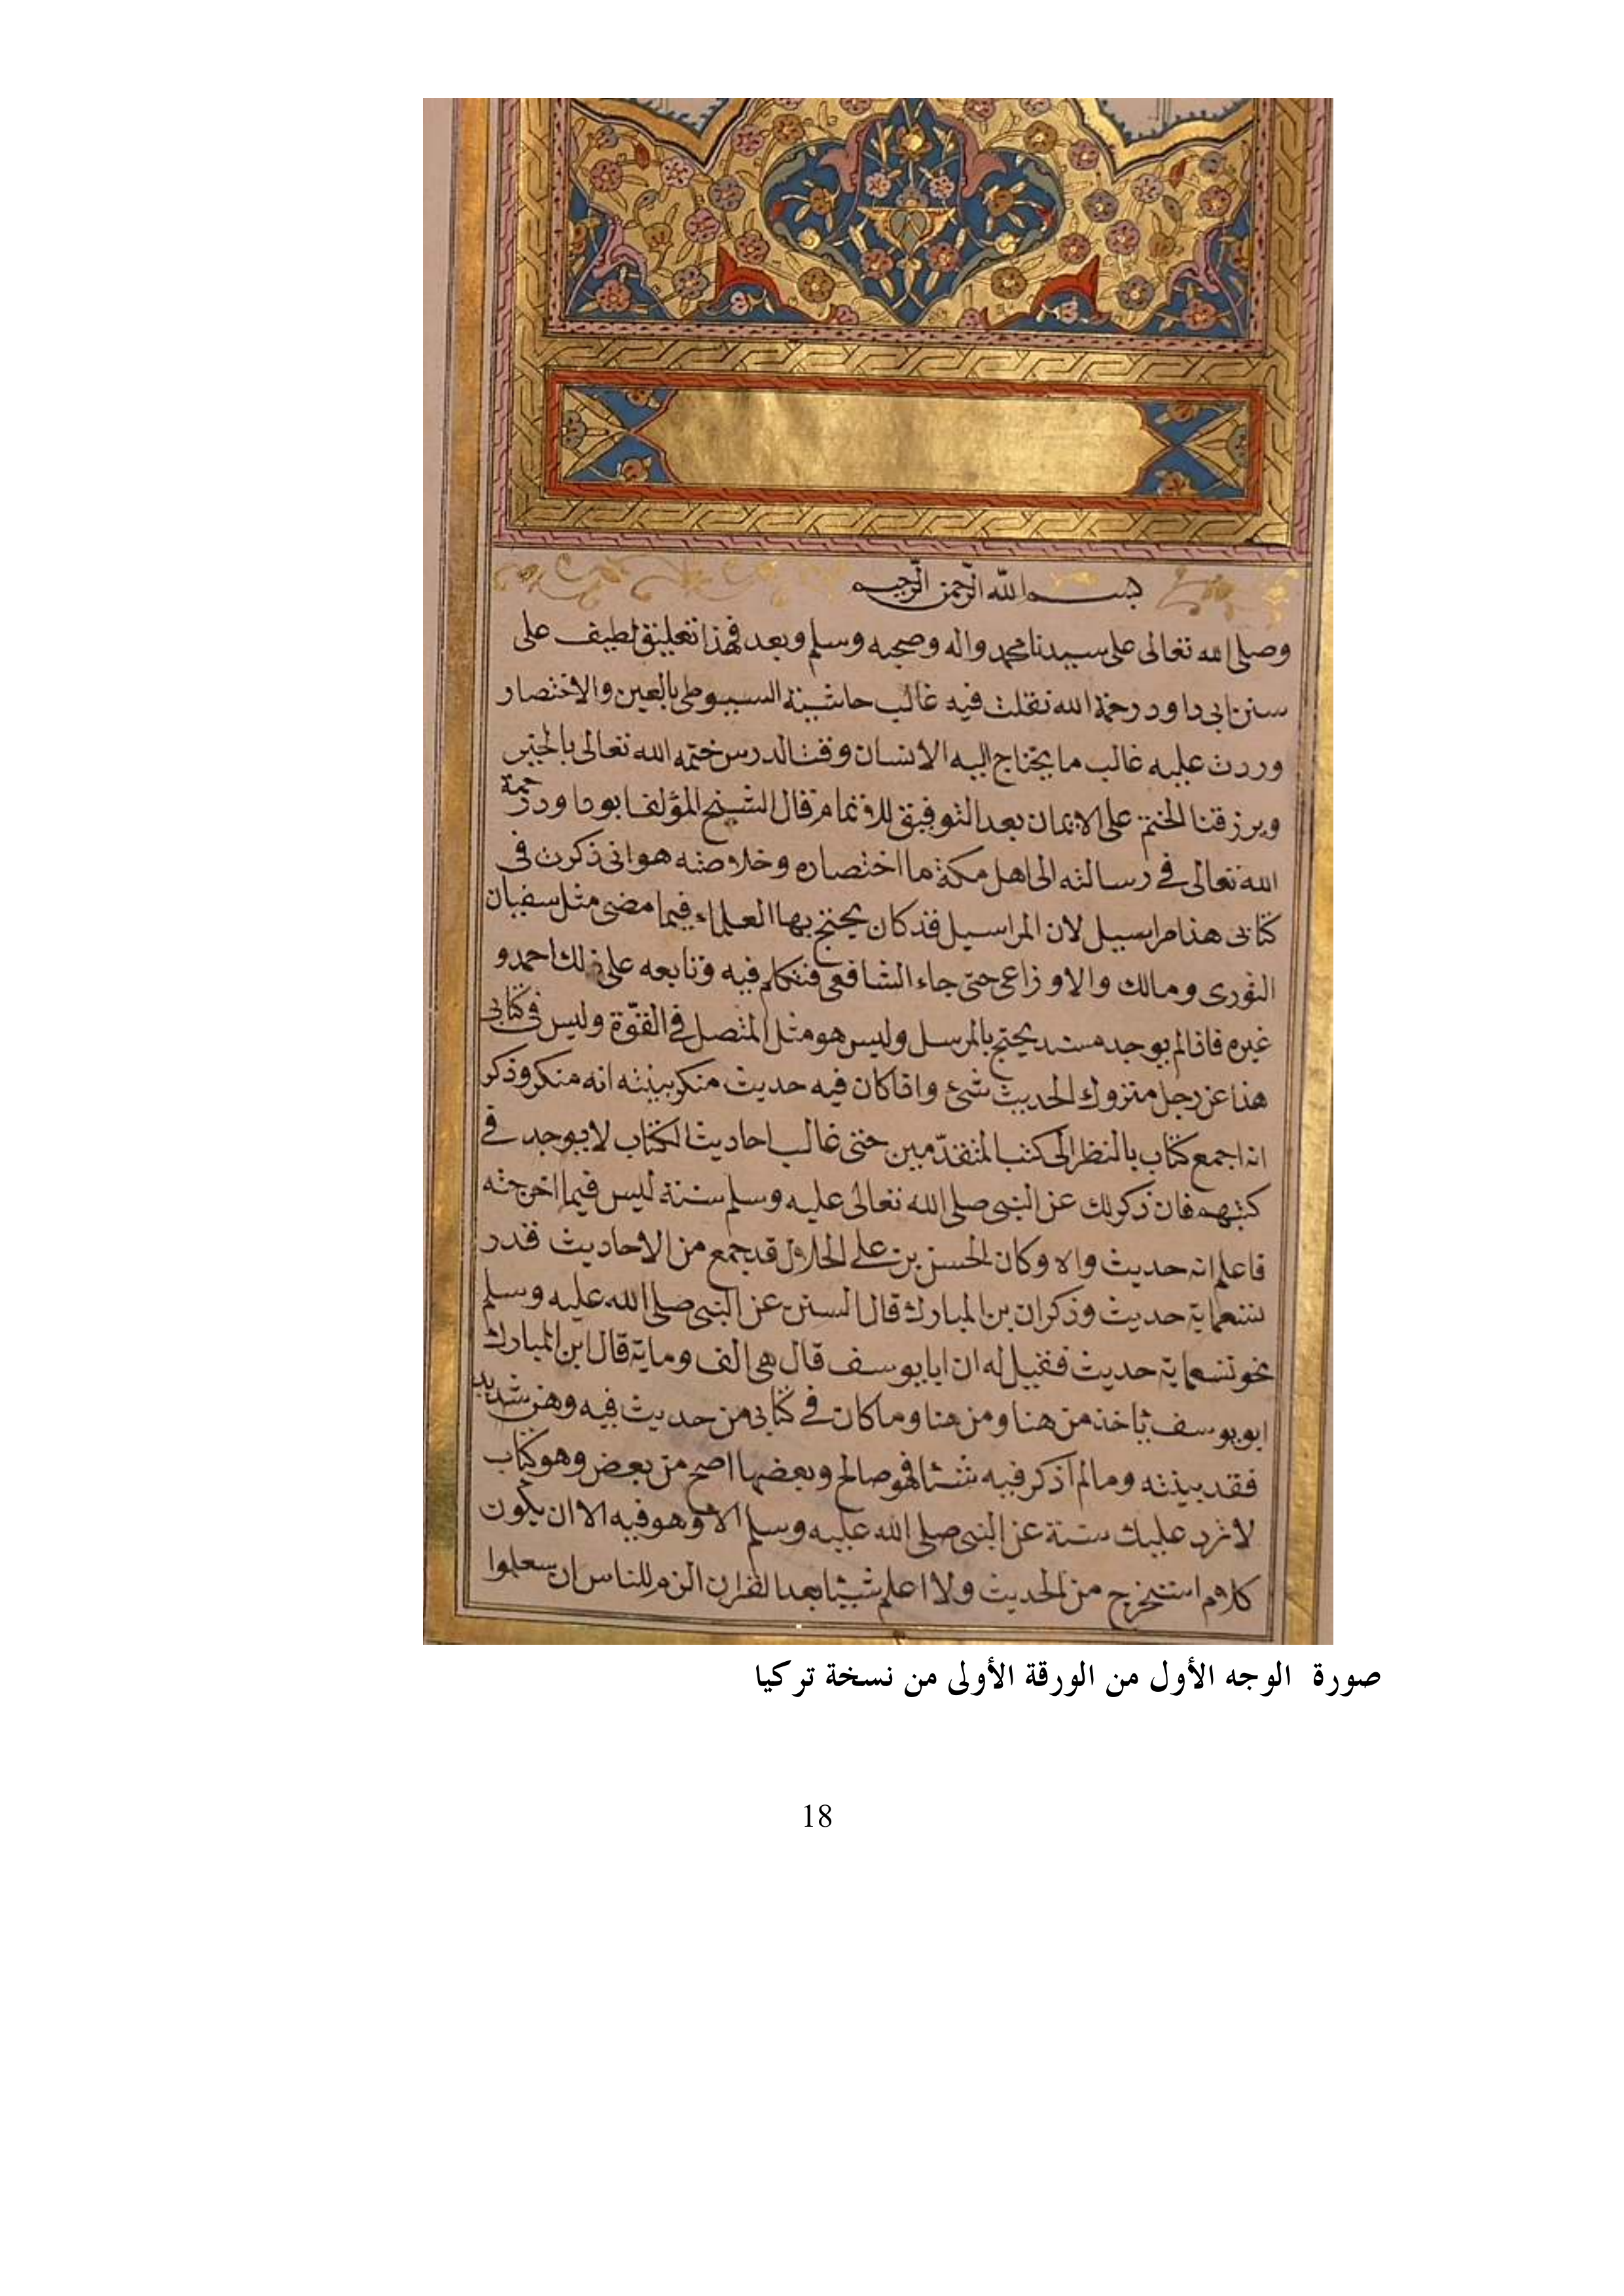 بسم الله الرحمن الرحيم
وصلى الله تعالى على سيدنا محمد واله وصحبه وسلم وبعد فهذا تعليق لطيف على
سنن ابى داود رحمة الله نقلت فيه غالب حاشية السيوطى بالعين والاختصار
وردت عليه غالب ما يحتاج اليه الانسان وقت الدرس ختمه الله تعالى بالخير
ويرزقنا الختم على الايمان بعد التوفيق للاتمام قال الشيخ المؤلف ابو داود رحمة
الله تعالى فى رسالته الى اهل مكة ما اختصاره وخلاصته هو انى ذكرت فى
كتابى هذا مراسيل لان المراسيل قد كان يحتج بها العلماء فيما مضى مثل سفيان
الثورى ومالك والاوزاعى حتى جاء الشافعى فتكلم فيه وتابعه على ذلك احمد و
غيره فاذا لم يوجد مسند يحتج بالمرسل وليس هو مثل المتصل فى القوة وليس فى كتابى
هذا عن رجل متروك الحديث شئ واذا كان فيه حديث منكر بينته انه منكر وذكر
انه اجمع كتاب بالنظر الى كتب المتقدمين حتى غالب احاديث الكتاب لا يوجد فى
كتبهم فان ذكر لك عن النبى صلى الله تعالى عليه وسلم سنة ليس فيما اخرجته
فاعلم انه حديث واه وكان الحسن بن على الخلال قد جمع من الاحاديث قدر
تسعماية حديث وذكر ان بن المبارك قال السنن عن النبى صلى الله عليه وسلم
نحو تسعماية حديث فقيل له ان ابا يوسف قال هى الف وماية قال ابن المبارك
ابو يوسف ياخذ من هنا ومن هنا وما كان فى كتابى من حديث فيه وهن شديد
فقد بينته وما لم اذكر فيه شيئا فهو صالح وبعضها اصح من بعض وهو كتاب
لا ترد عليك سنة عن النبى صلى الله عليه وسلم الا وهو فيه الا ان يكون
كلام استخرج من الحديث ولا اعلم شيئا بعد القران الزم للناس ان يتعلموا
صورة الوجه الأول من الورقة الأولى من نسخة تركيا
18